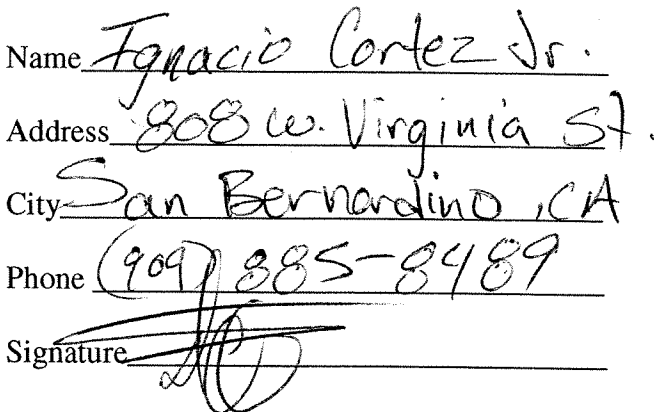 Name Ignacio Cortez Jr.
Address 808 w. Virginia St.
City San Bernardino, CA
Phone (909) 885-8489
Signature